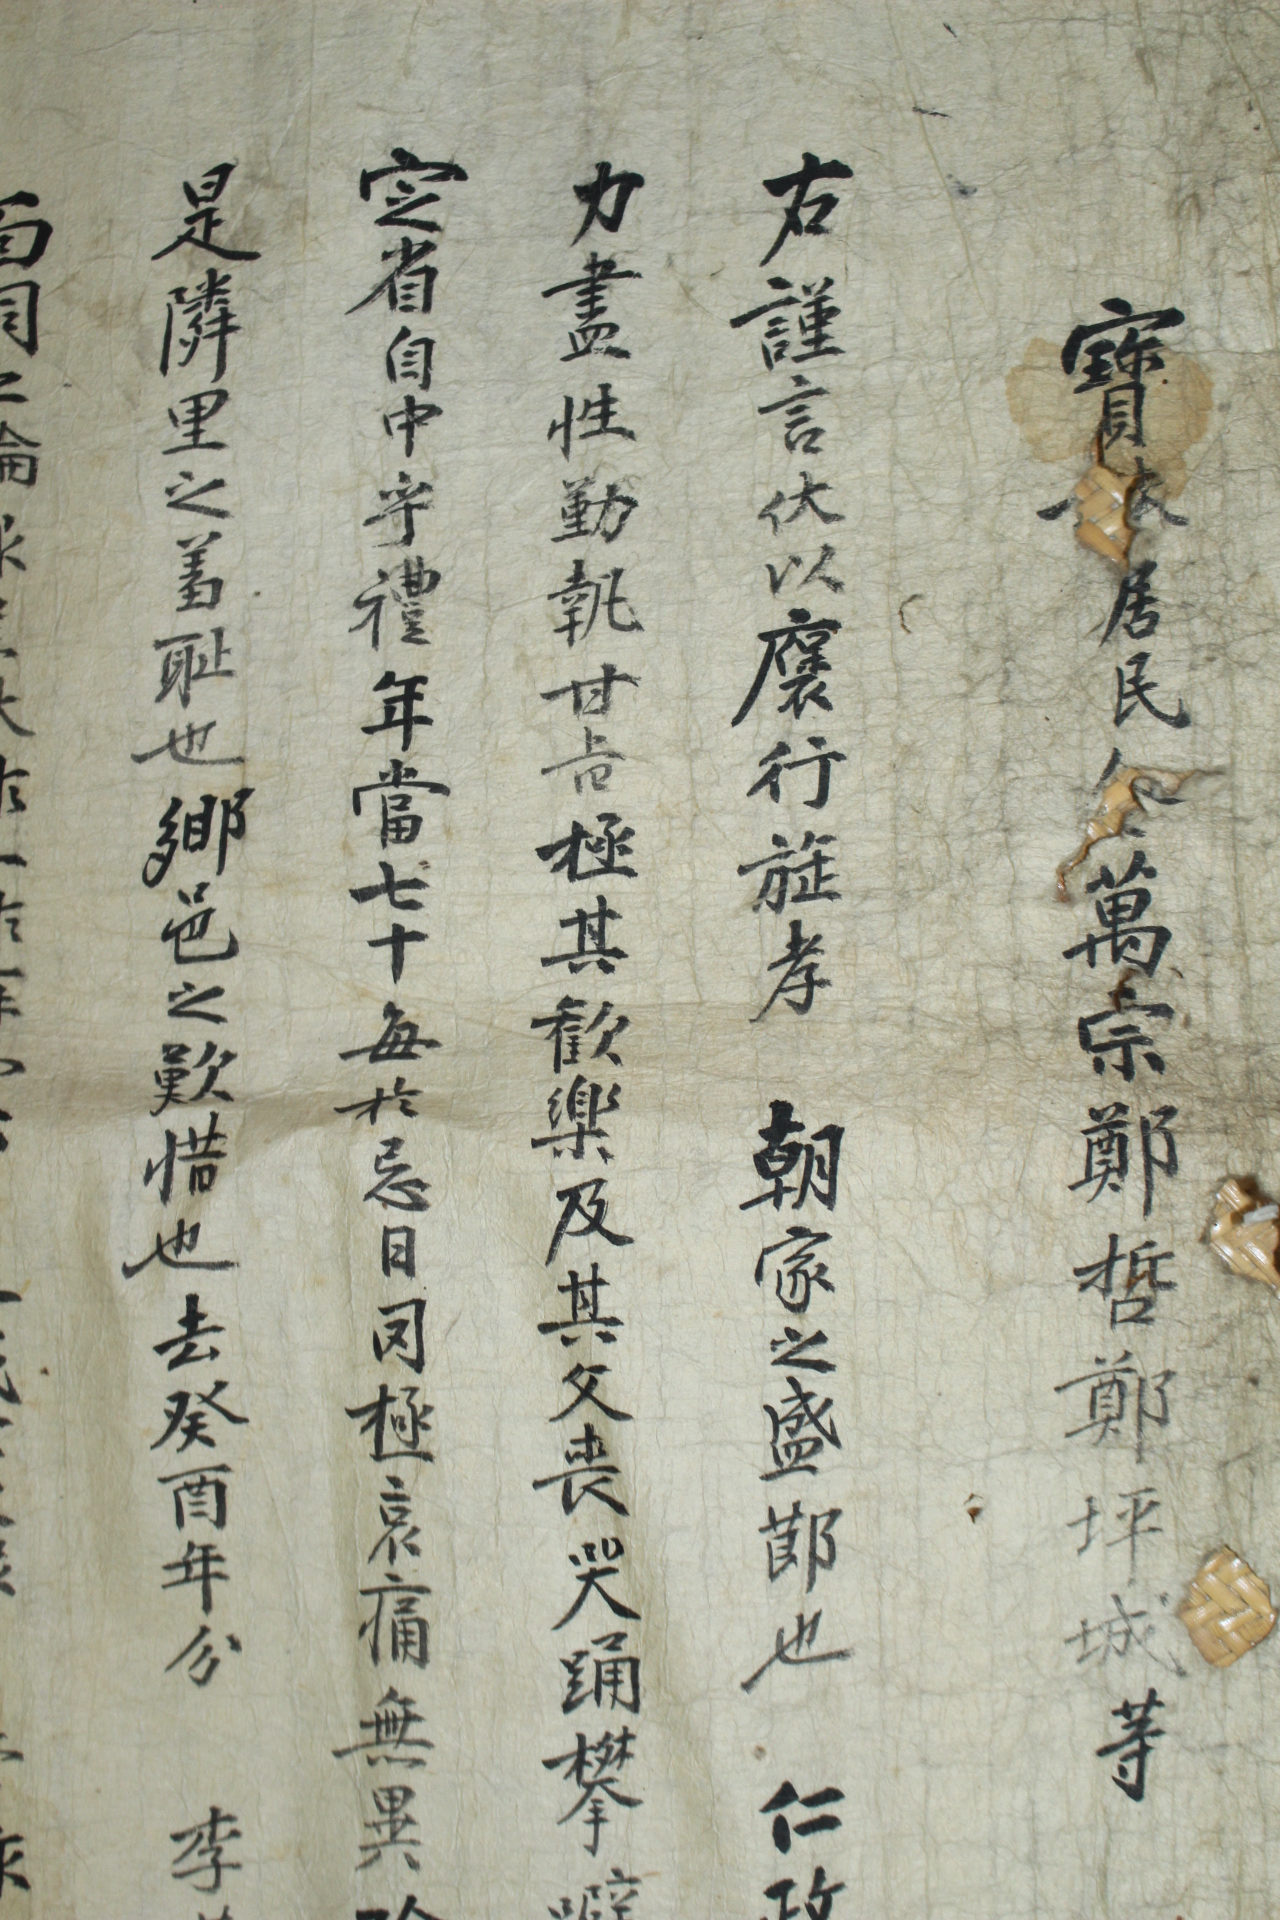 寶城居民金萬宗鄭哲鄭坪城等
右謹言伏以褒行旌孝 朝家之盛節也 仁政
力盡性勤執甘旨極其歡樂及其父喪哭踊攀擗
定省自中乎禮年當七十每於忌日罔極哀痛無異
是隣里之羞耻也鄉邑之歎惜也去癸酉年分 李
面同之論